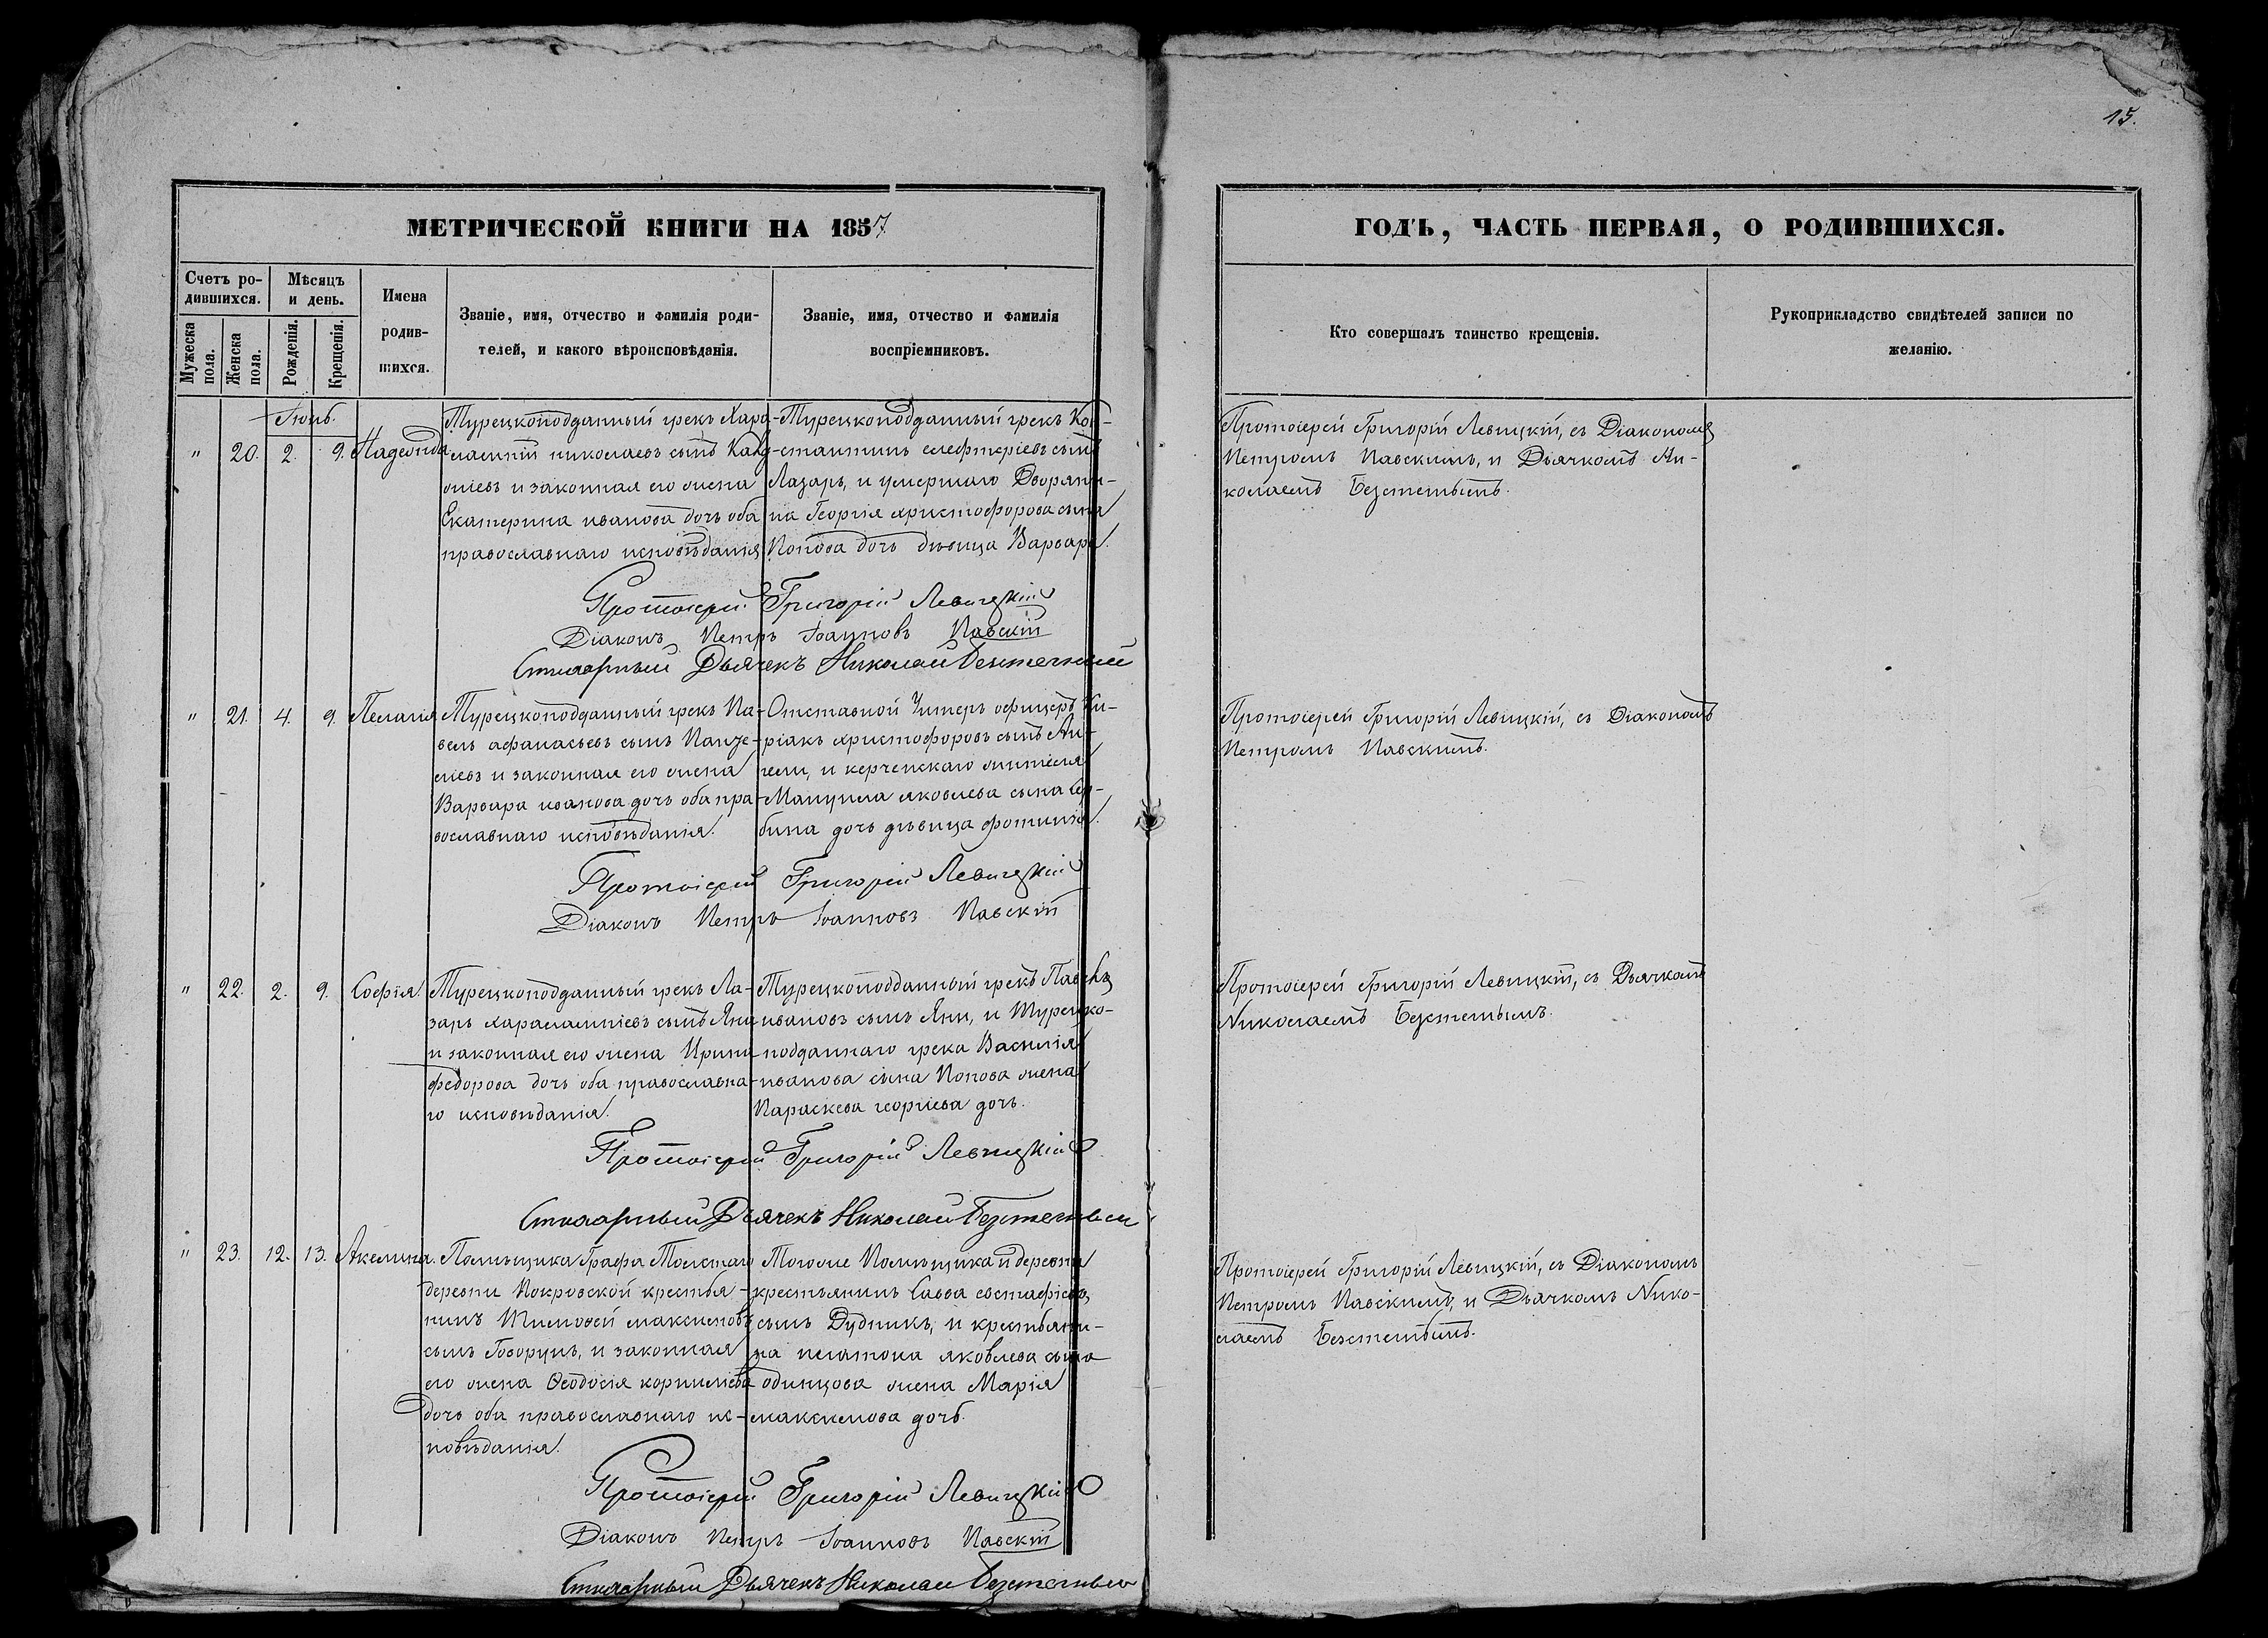 15.
МЕТРИЧЕСКОЙ КНИГИ НА 1857
ГОДЪ, ЧАСТЬ ПЕРВАЯ, О РОДИВШИХСЯ.
Счетъ ро-
дившихся.
Мѣсяцъ
и день.
Мужеска
пола.
Женска
пола.
Рожденія.
Крещенія.
Имена
родив-
шихся.
Званіе, имя, отчество и фамилія роди-
телей, и какого вѣроисповѣданія.
Званіе, имя, отчество и фамилія
воспріемниковъ.
Кто совершалъ таинство крещенія.
Рукоприкладство свидѣтелей записи по
желанію.
Іюнь.
" 20. 2. 9. Надежда
Турецкоподданный грекъ Хара-
лампій николаевъ сынъ
и законная его жена
Екатерина иванова дочь оба
православнаго исповѣданія
Турецкоподданный грекъ Кон-
стантинъ елефтеріевъ сынъ
Лазарь, и умершаго Дворяни-
на Георгія христофорова сына
Попова дочь дѣвица Варвара.
Протоіерей Григорій Левицкій, съ Діакономъ
Петромъ Павскимъ, и Дьячкомъ Ни-
колаемъ Безстетнымъ.
Протоіерей Григорій Левицкій
Діаконъ Петръ Іоанновъ Павскій
Стихарный Дьячекъ Николай
" 21. 4. 9. Пелагія
Турецкоподданный грекъ Па-
велъ афанасьевъ сынъ Панзе-
ліевъ и законная его жена
Варвара иванова дочь оба пра-
вославнаго исповѣданія.
Отставной Унтеръ офицеръ Ки-
ріакъ христофоровъ сынъ Ан-
гели, и керченскаго жителя
Мануила яковлева сына
бина дочь дѣвица фотинія.
Протоіерей Григорій Левицкій, съ Діакономъ
Петромъ Павскимъ.
Протоіерей Григорій Левицкій
Діаконъ Петръ Іоанновъ Павскій
" 22. 2. 9. Софія
Турецкоподданный грекъ Ла-
зарь харалампіевъ сынъ Яни
и законная его жена Ирина
федорова дочь оба православна-
го исповѣданія.
Турецкоподданный грекъ Павелъ
ивановъ сынъ Яни, и Турецко-
подданнаго грека Василія
иванова сына Попова жена
Параскева георгіева дочь.
Протоіерей Григорій Левицкій, съ Дьячкомъ
Николаемъ Безстетнымъ.
Протоіерей Григорій Левицкій
Стихарный Дьячекъ Николай
" 23. 12. 13. Акелина.
Помѣщика Графа Толстаго
деревни Покровской крестья-
нинъ Тимофей максимовъ
сынъ Говорунъ, и законная
его жена Ѳеодосія корнилова
дочь оба православнаго ис-
повѣданія.
Тогоже Помѣщика и деревни
крестьянинъ Савва евстафіевъ
сынъ Дудникъ, и крестьяни-
на платона яковлева сына
одинцова жена Марія
максимова дочь.
Протоіерей Григорій Левицкій, съ Діакономъ
Петромъ Павскимъ, и Дьячкомъ Нико-
лаемъ Безстетнымъ.
Протоіерей Григорій Левицкій
Діаконъ Петръ Іоанновъ Павскій
Стихарный Дьячекъ Николай